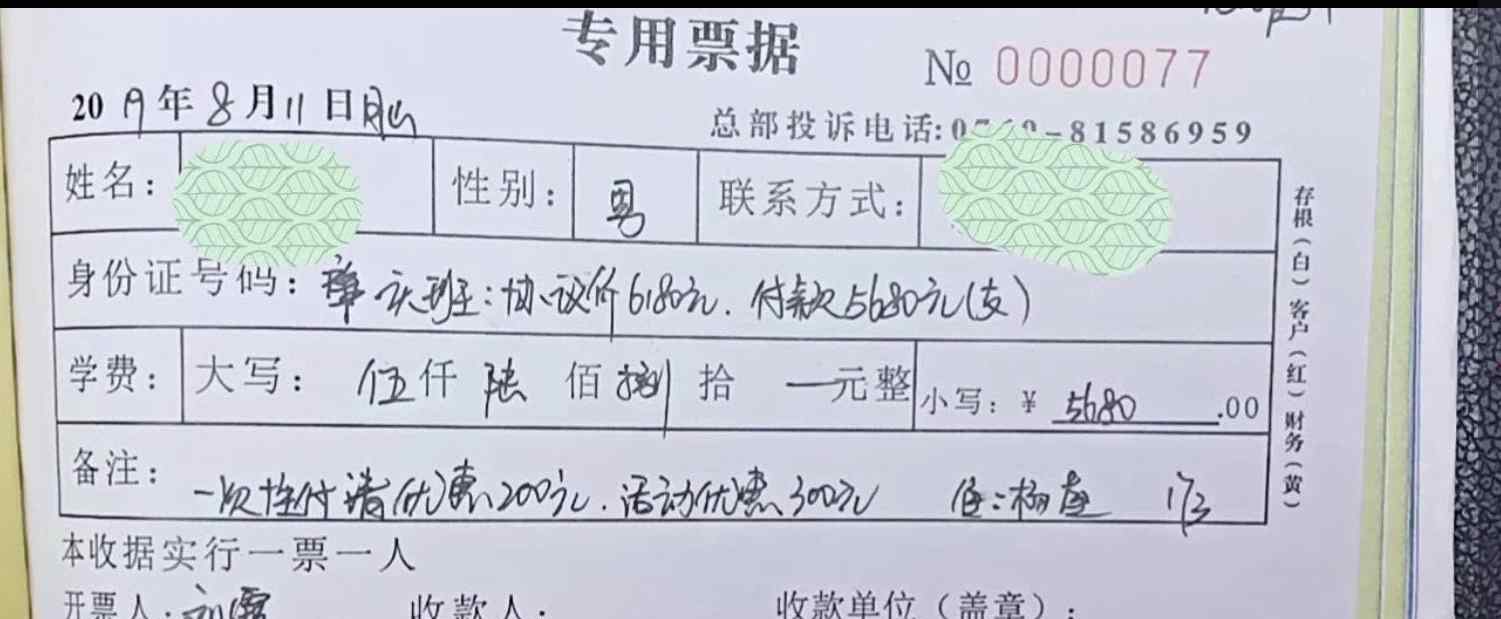 专用票据
№ 0000077
2019年8月11日
总部投诉电话:0 -81586959
姓名： 性别： 男 联系方式：
身份证号码： 班：协议价6180元．付款5680元(支)
学费： 大写： 伍仟陆佰捌拾一元整 小写：¥ 5680.00
备注： 一次性付清优惠200元．活动优惠300元
存根（白）客户（红）财务（黄）
本收据实行一票一人
开票人： 收款人： 收款单位（盖章）：